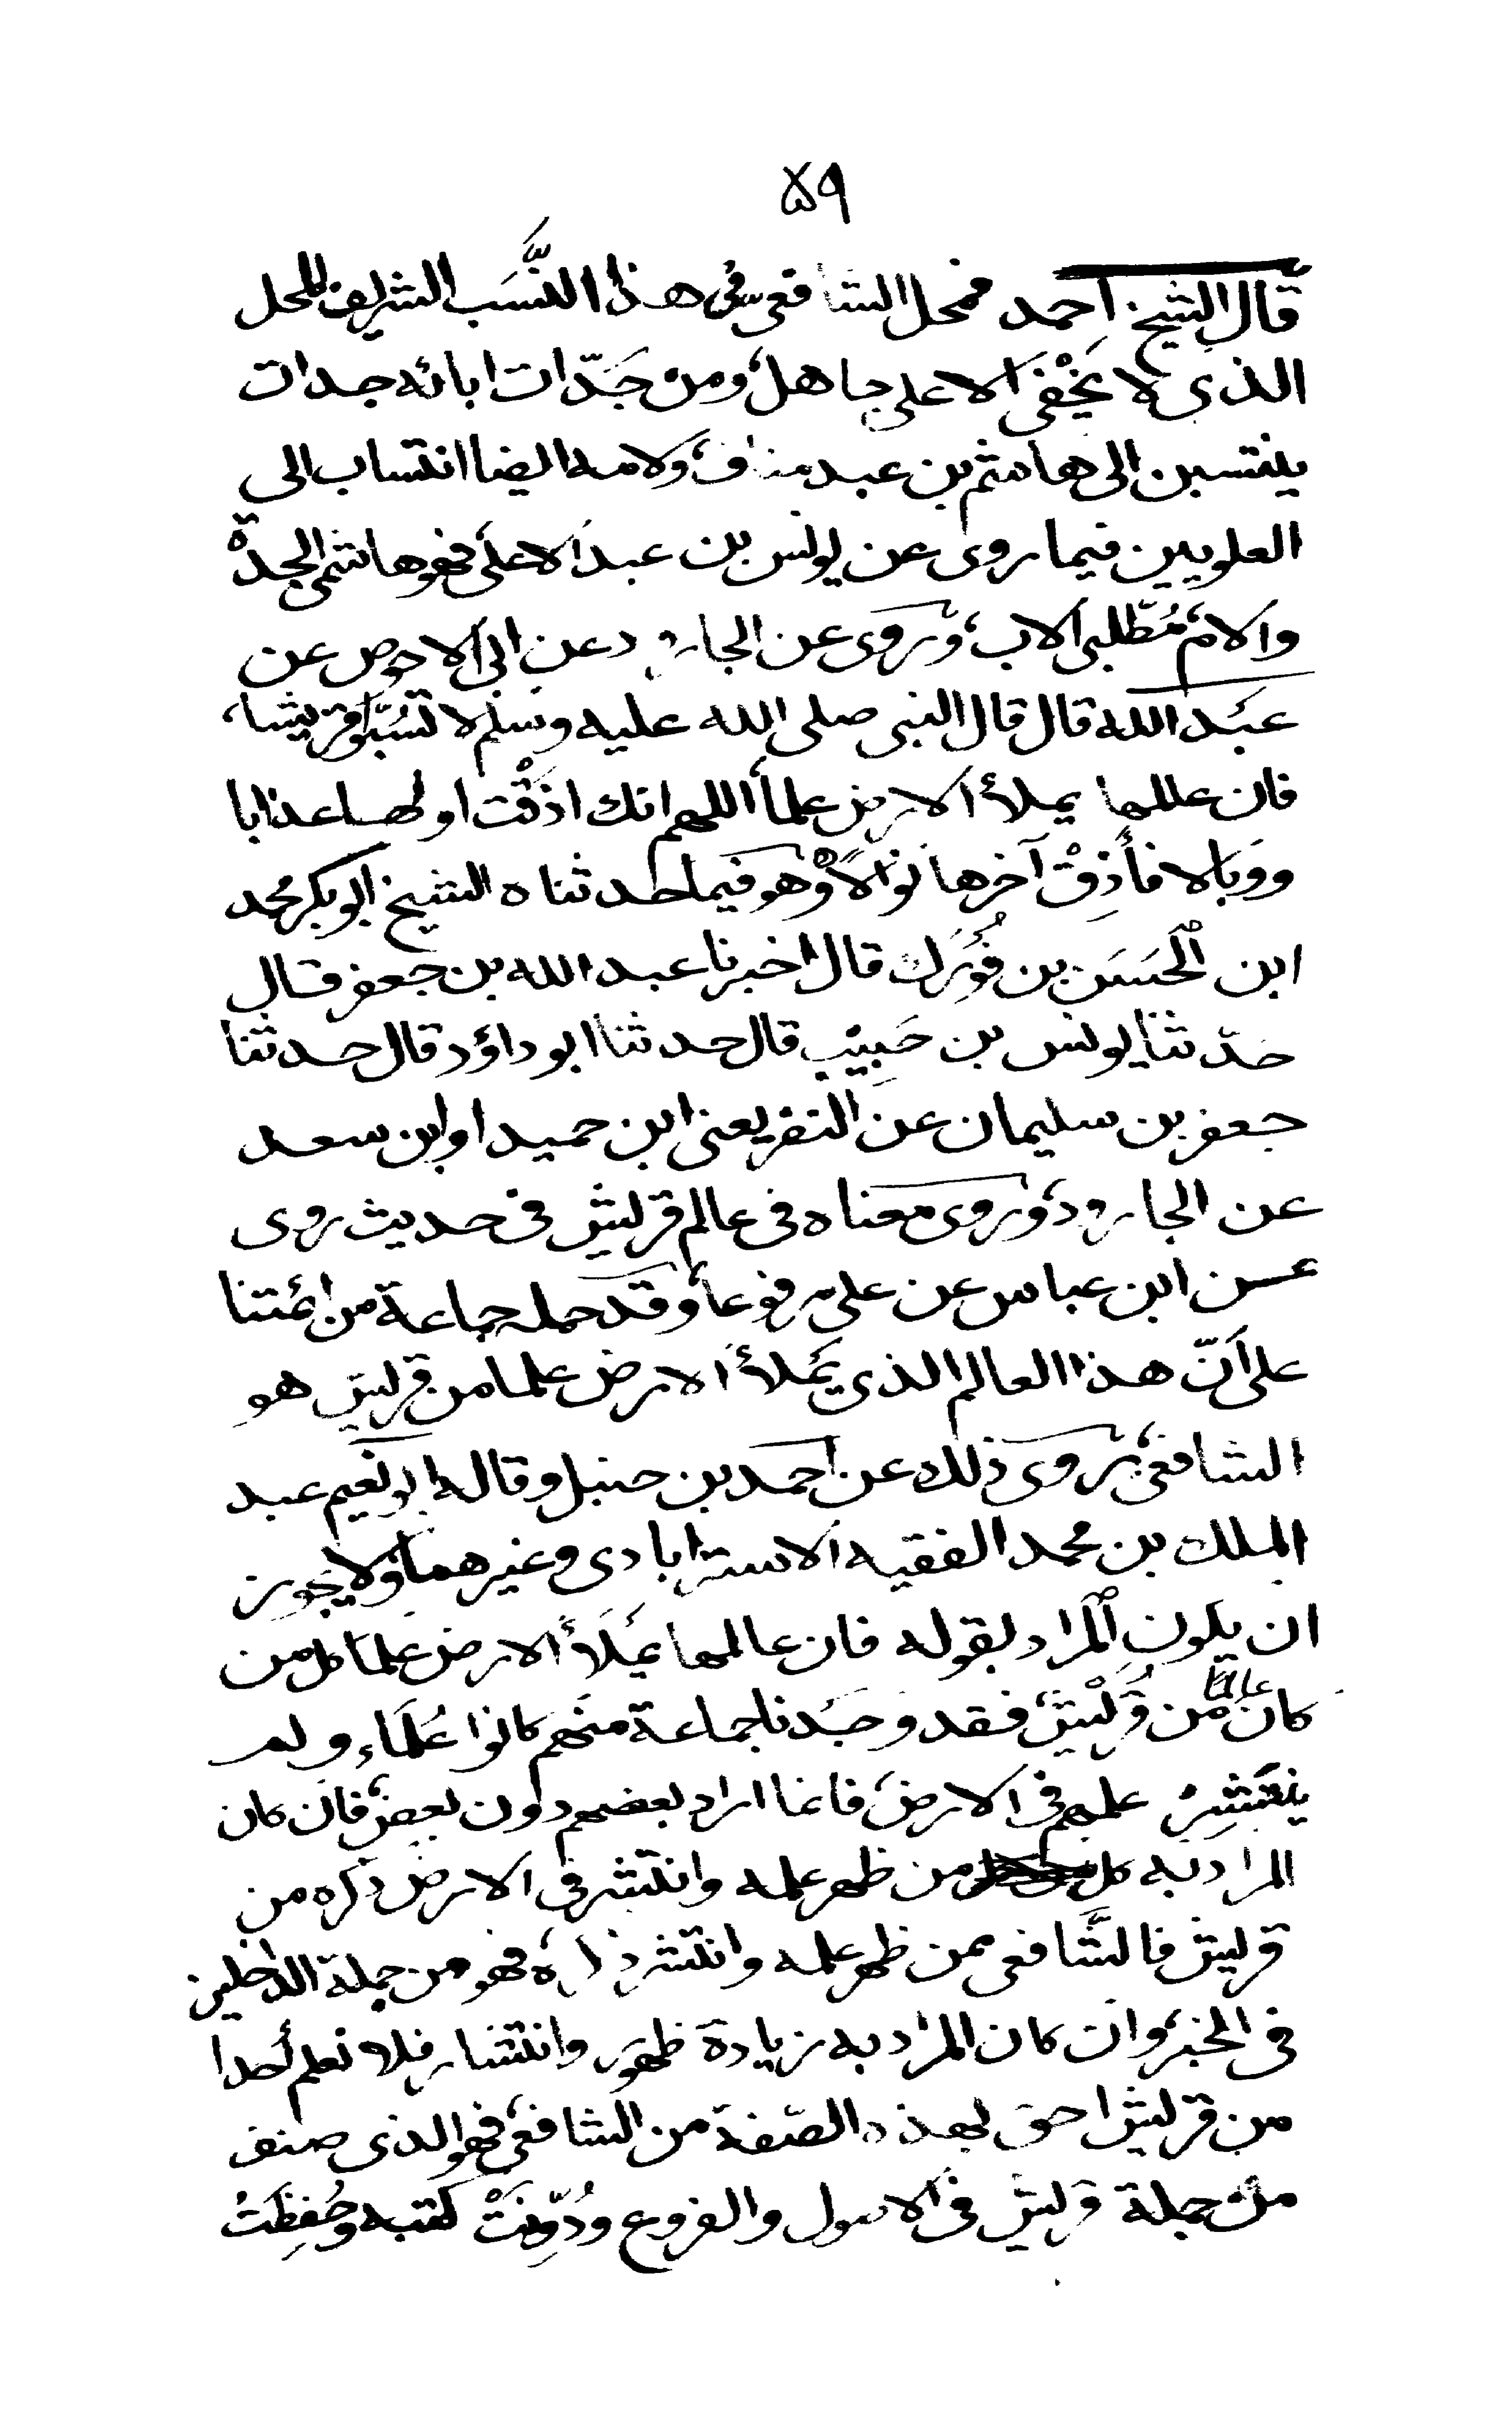 ٥٩
قال الشيخ احمد فمحل الشافعي في هذا النَّسَب الشريف المحل
الذي لا يَخْفى الا على جاهل، ومن جَدّات ابائه جدات
ينتسبن الى هاشم بن عبد مناف، ولامه ايضا انتساب الى
العلويين فيما روى عن يونس بن عبد الاعلى، فهو هاشمى الجدة
والام، مُطّلبى الاب، وروى عن الجارود عن ابى الاحوص عن
عبد الله قال قال النبى صلى الله عليه وسلم لا تسُبّوا قريشا،
فان عالمها يملأ الارض علما، اللهم انك اذقْت اولها عذابا
ووبالا فأذِقْ آخرها نوالًا، وهو فيما حدثناه الشيخ ابو بكر محمد
ابن الْحَسَن بن فُوْرَك قال اخبرنا عبد الله بن جعفر قال
حدّثنا يونس بن حَبِيْب قال حدثنا ابو داؤد قال حدثنا
جعفر بن سليمان عن النضر يعنى ابن حميد او ابن سعد
عن الجارود، وروى معناه فى عالم قريش فى حديث روى
عن ابن عباس عن على مرفوعا، وقد حمله جماعة من ائمتنا
على اَنّ هذا العالم الذى يَمْلأ الارض علما من قريش هو
الشافعى، روى ذلك عن احمد بن حنبل وقاله ابو نُعَيم عبد
الملك بن محمد الفقيه الاسترابادى وغيرهما، ولا يجوز
ان يكون الْمراد بقوله فان عالمها يَمْلَأ الارض علما كل من
كان عالمًا من قُرَيْش، فقد وجَدنا جماعة منهم كانوا عُلَمَاء ولم
ينتشِرْ علمهم فى الارض، فانما اراد بعضهم دون بعض، فان كان
المراد به كل من ظهر علمه وانتشر فى الارض ذكره من
قريش فالشَّافعى ممن ظهر علمه وانتشر ذكره فهو من جملة الداخلين
فى الخبر، وان كان المراد به زيادة ظهور وانتشار فلا نعلم أحدا
من قريش احق بهذه الصّفة من الشافعى، فهو الذى صنف
من جملة قريش فى الاصول والفروع ودُوِّنَتْ كتبه وحُفِظَتْ